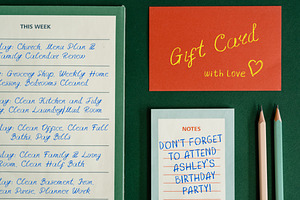 THIS WEEK
day: Church, Menu Plan &
Family Calendar Review
day: Grocery Shop, Weekly Home
Bedrooms Cleaned
day: Clean Kitchen and
Clean Laundry/Mud Room
day: Clean Office, Clean Full
Bath, Pay Bills
day: Clean Family & Living
Room, Clean Half Bath
day: Clean Basement,
Planner Week
Gift Card
with Love
NOTES
DON'T FORGET
TO ATTEND
ASHLEY'S
BIRTHDAY
PARTY!